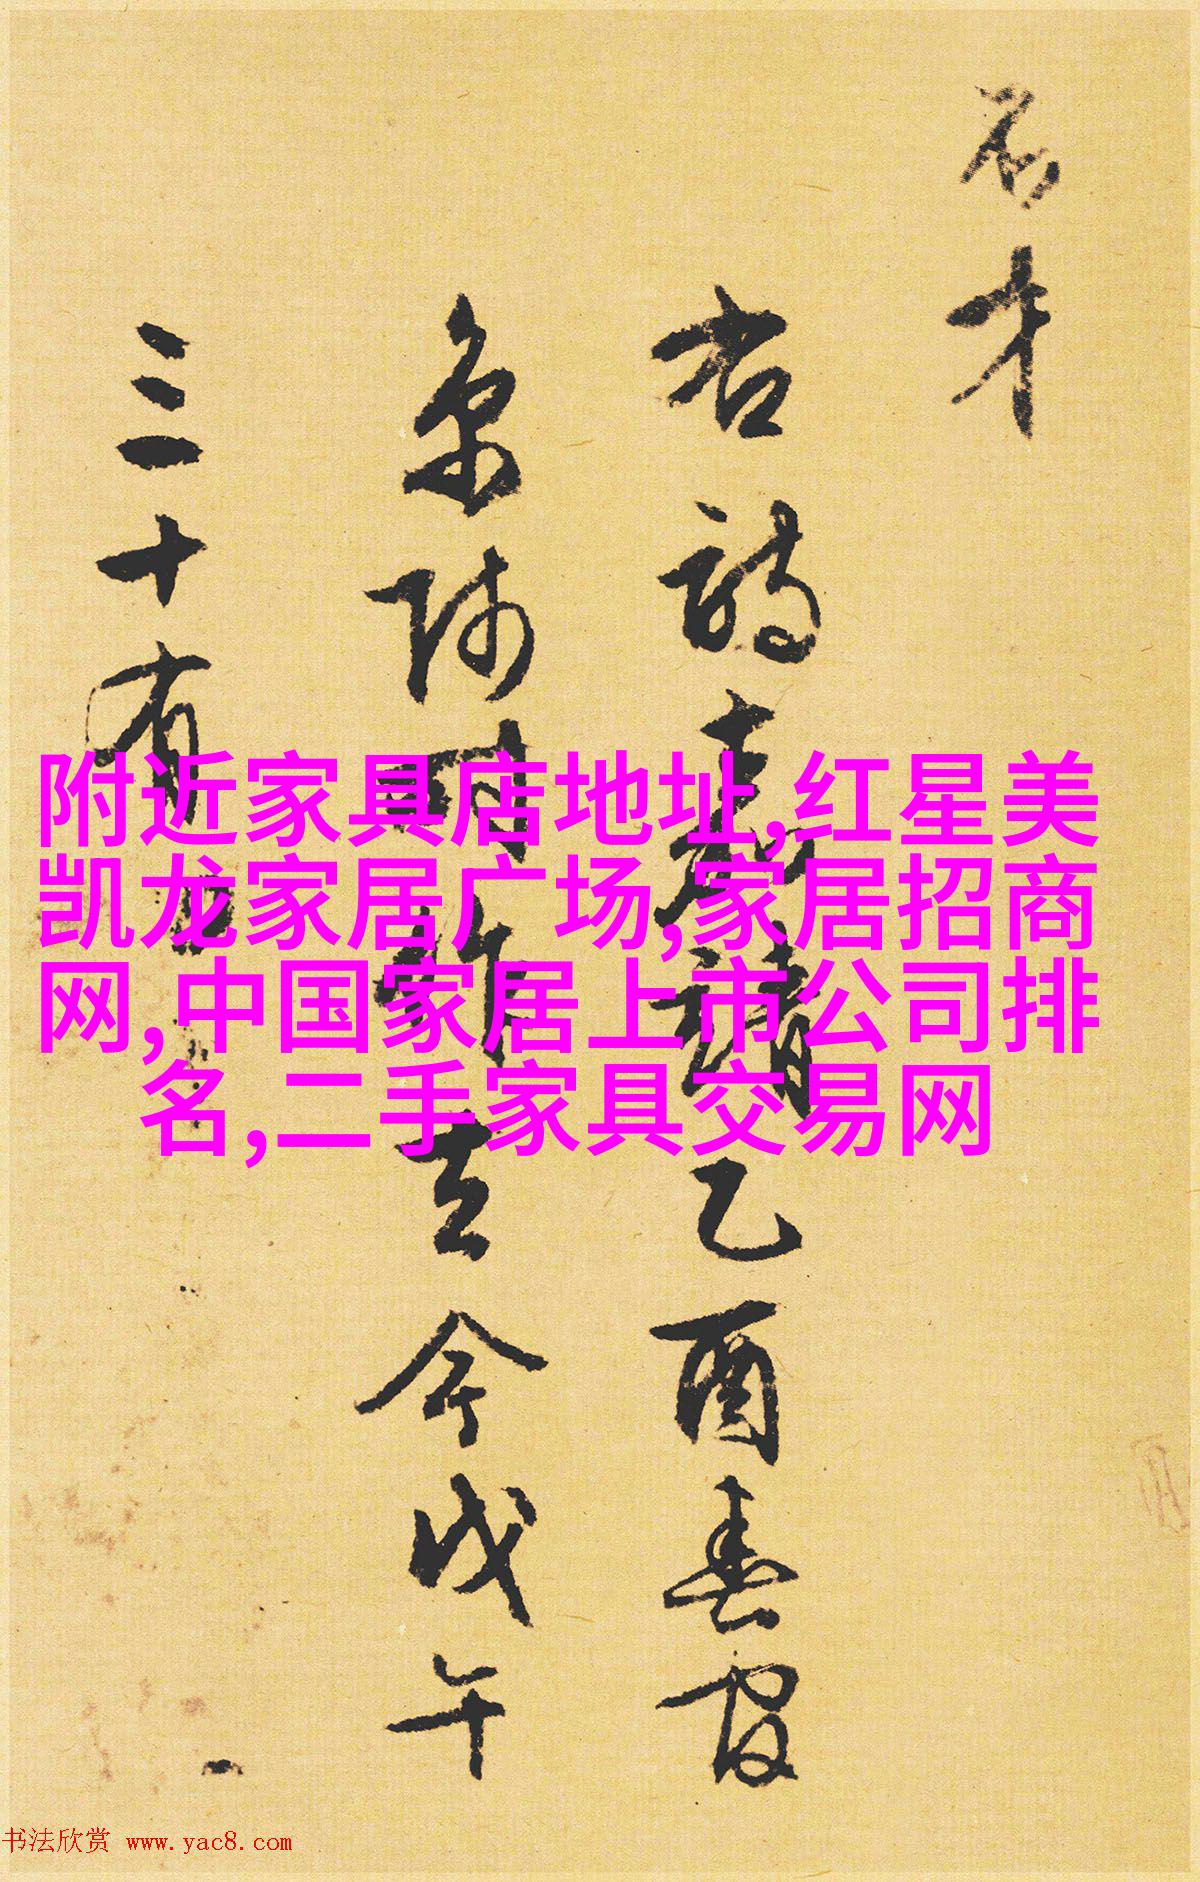 名才
右詩
乙酉春官
京師時作
去今戊午
三十有
附近家具店地址,红星美
凯龙家居广场,家居招商
网,中国家居上市公司排
名,二手家具交易网
书法欣赏 www.yac8.com